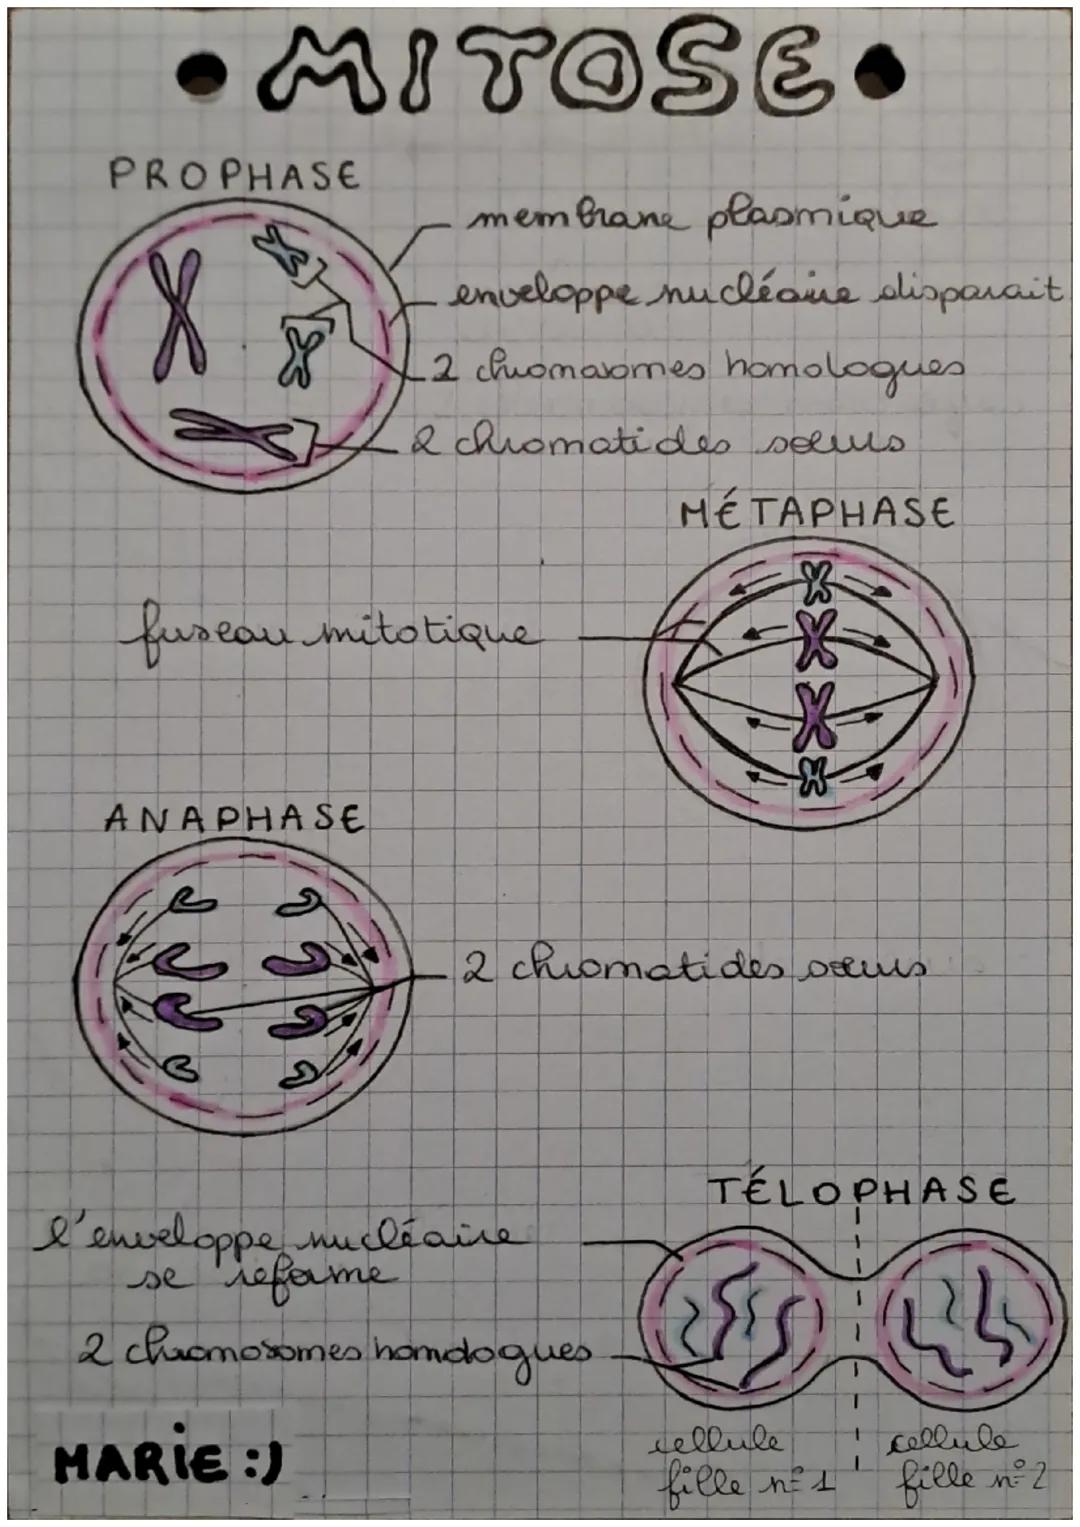 • MITOSE •
PROPHASE
membrane plasmique
enveloppe nucléaire disparait
2 chromosomes homologues
2 chromatides sœurs
MÉTAPHASE
fuseau mitotique
ANAPHASE
2 chromatides sœurs
TÉLOPHASE
l'enveloppe nucléaire
se reforme
2 chromosomes homologues
cellule
fille n° 1
cellule
fille n° 2
MARiE :)